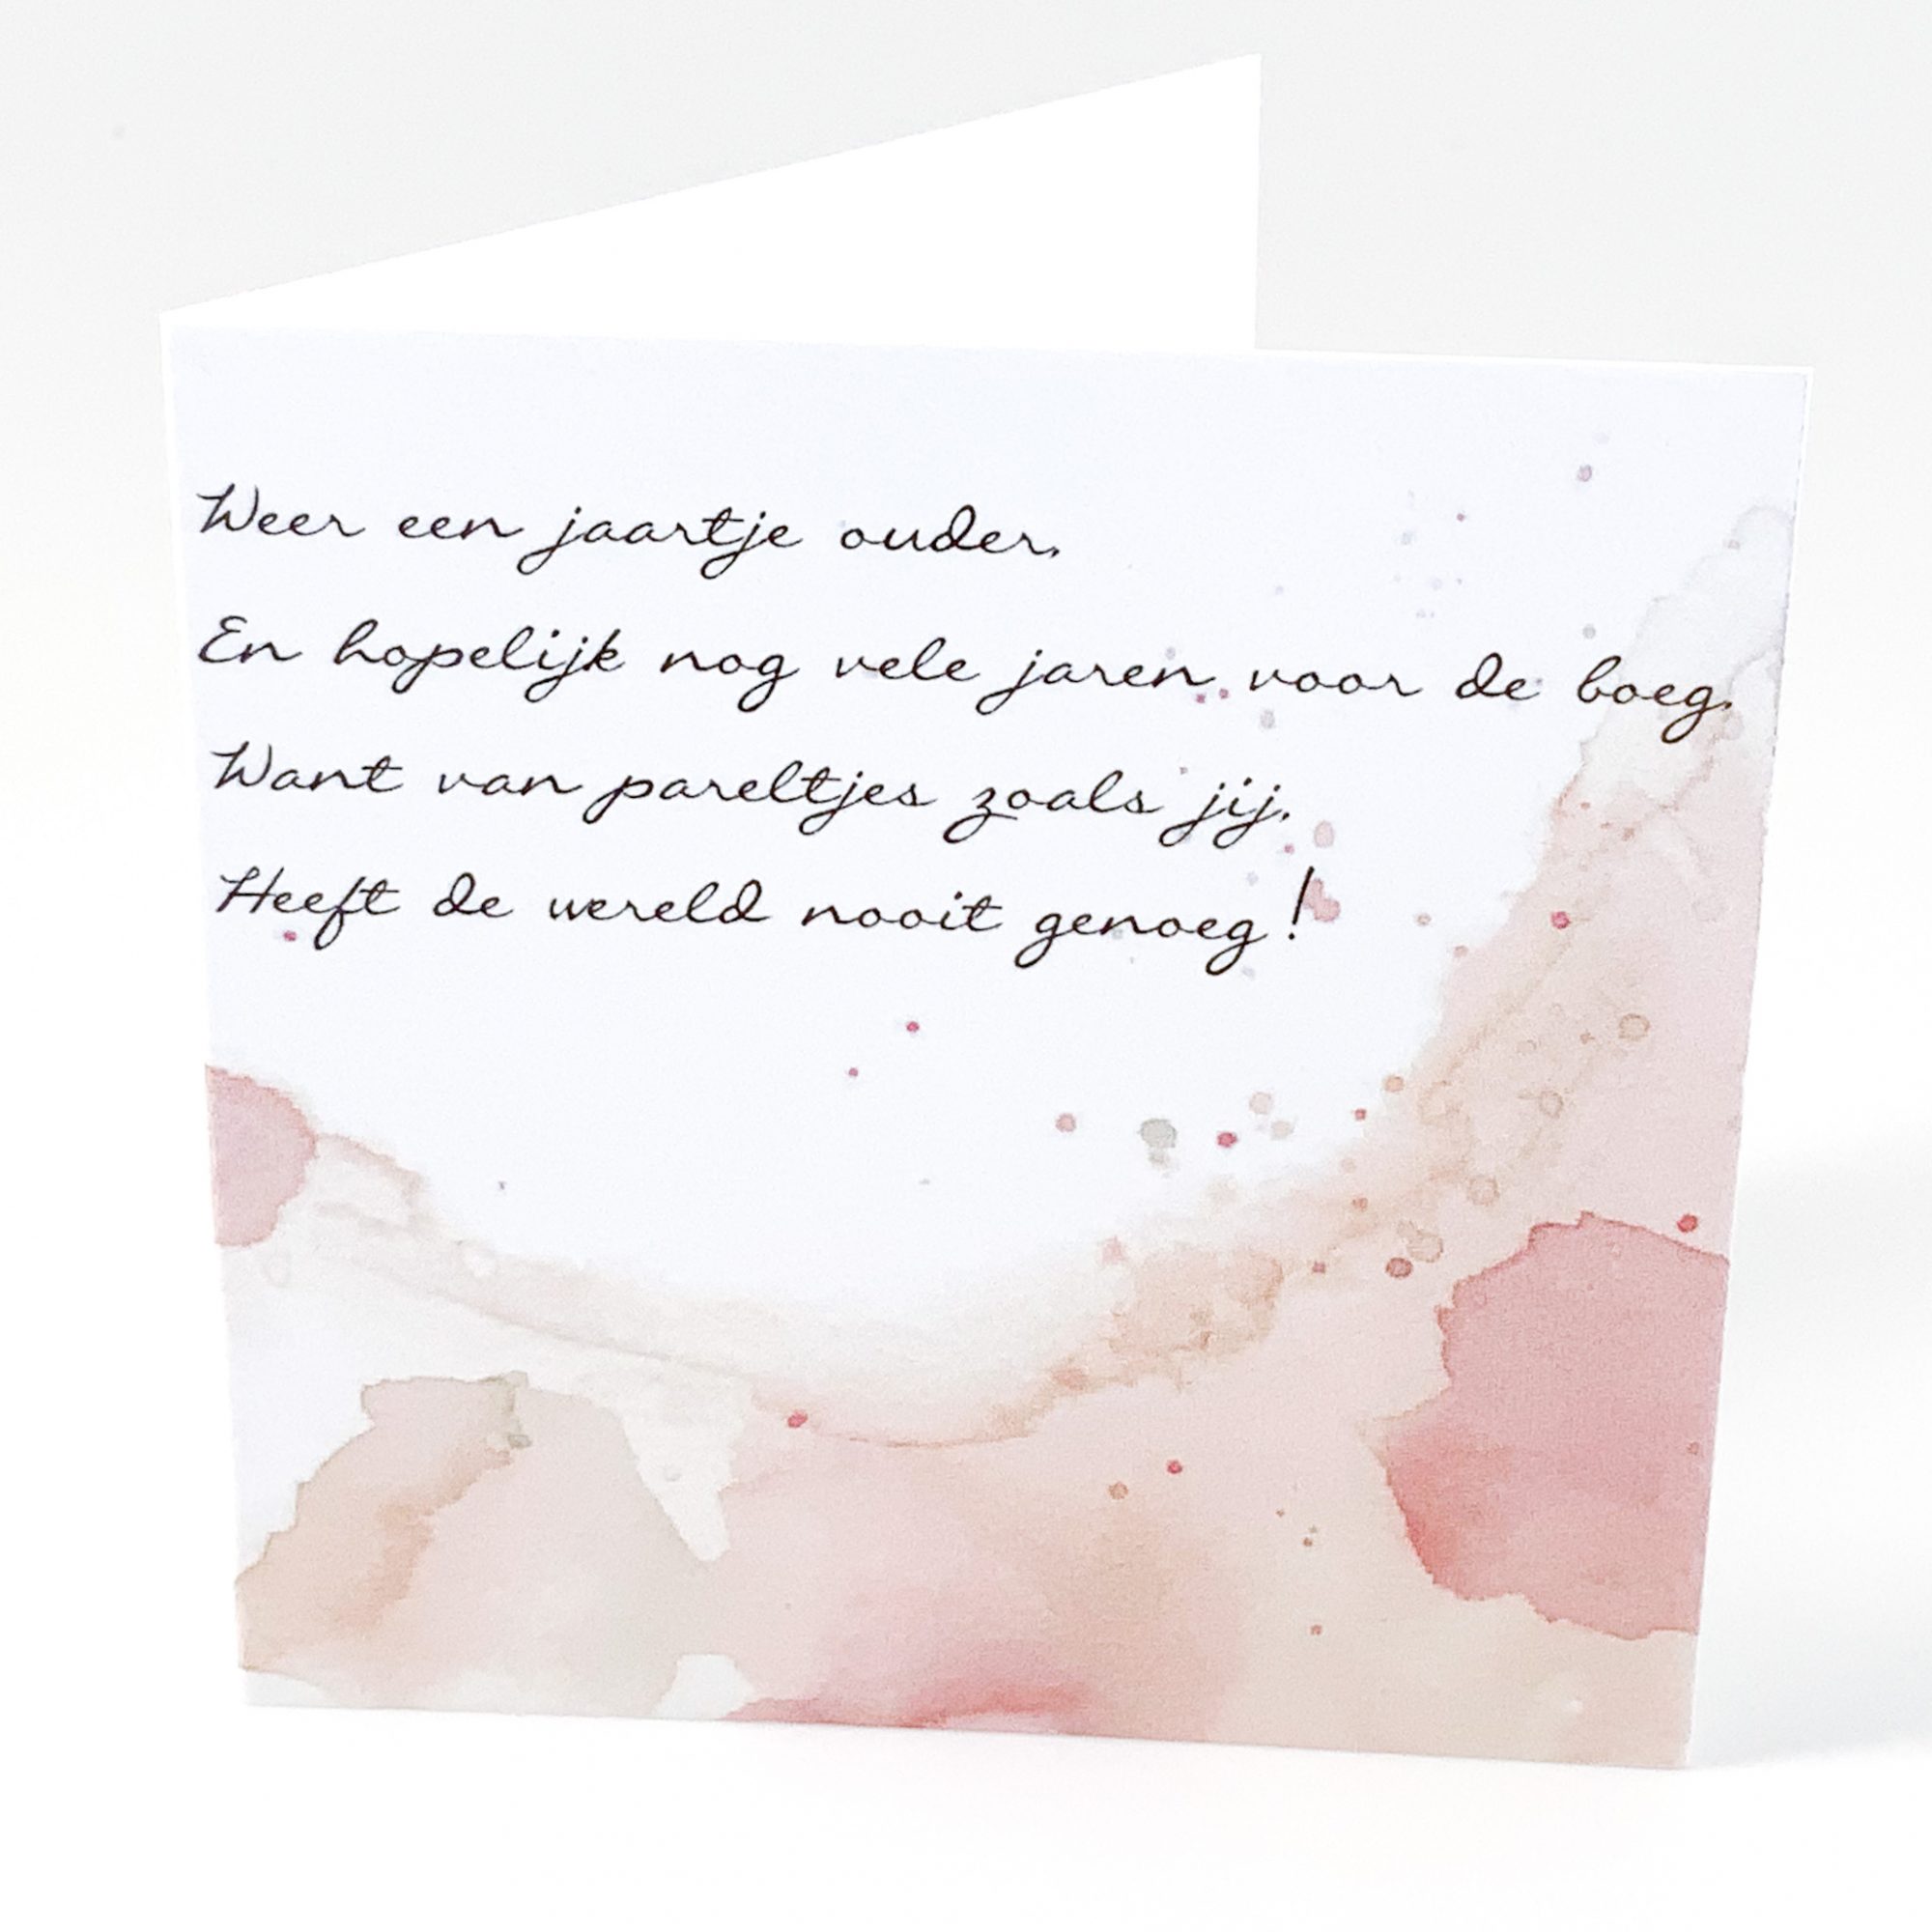 Weer een jaartje ouder.
En hopelijk nog vele jaren voor de boeg.
Want van pareltjes zoals jij.
Heeft de wereld nooit genoeg!